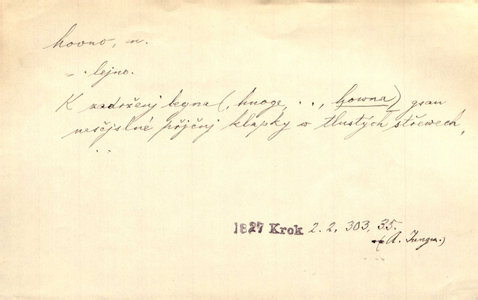 hovno, n.
– lejno.
K zadržený legna (, hnoge, . ., howna) gsau
nesčjslné přjčnj klapky w tlustých střewech,
. .
1827 Krok 2. 2, 303, 35.
(A. Jungm.)